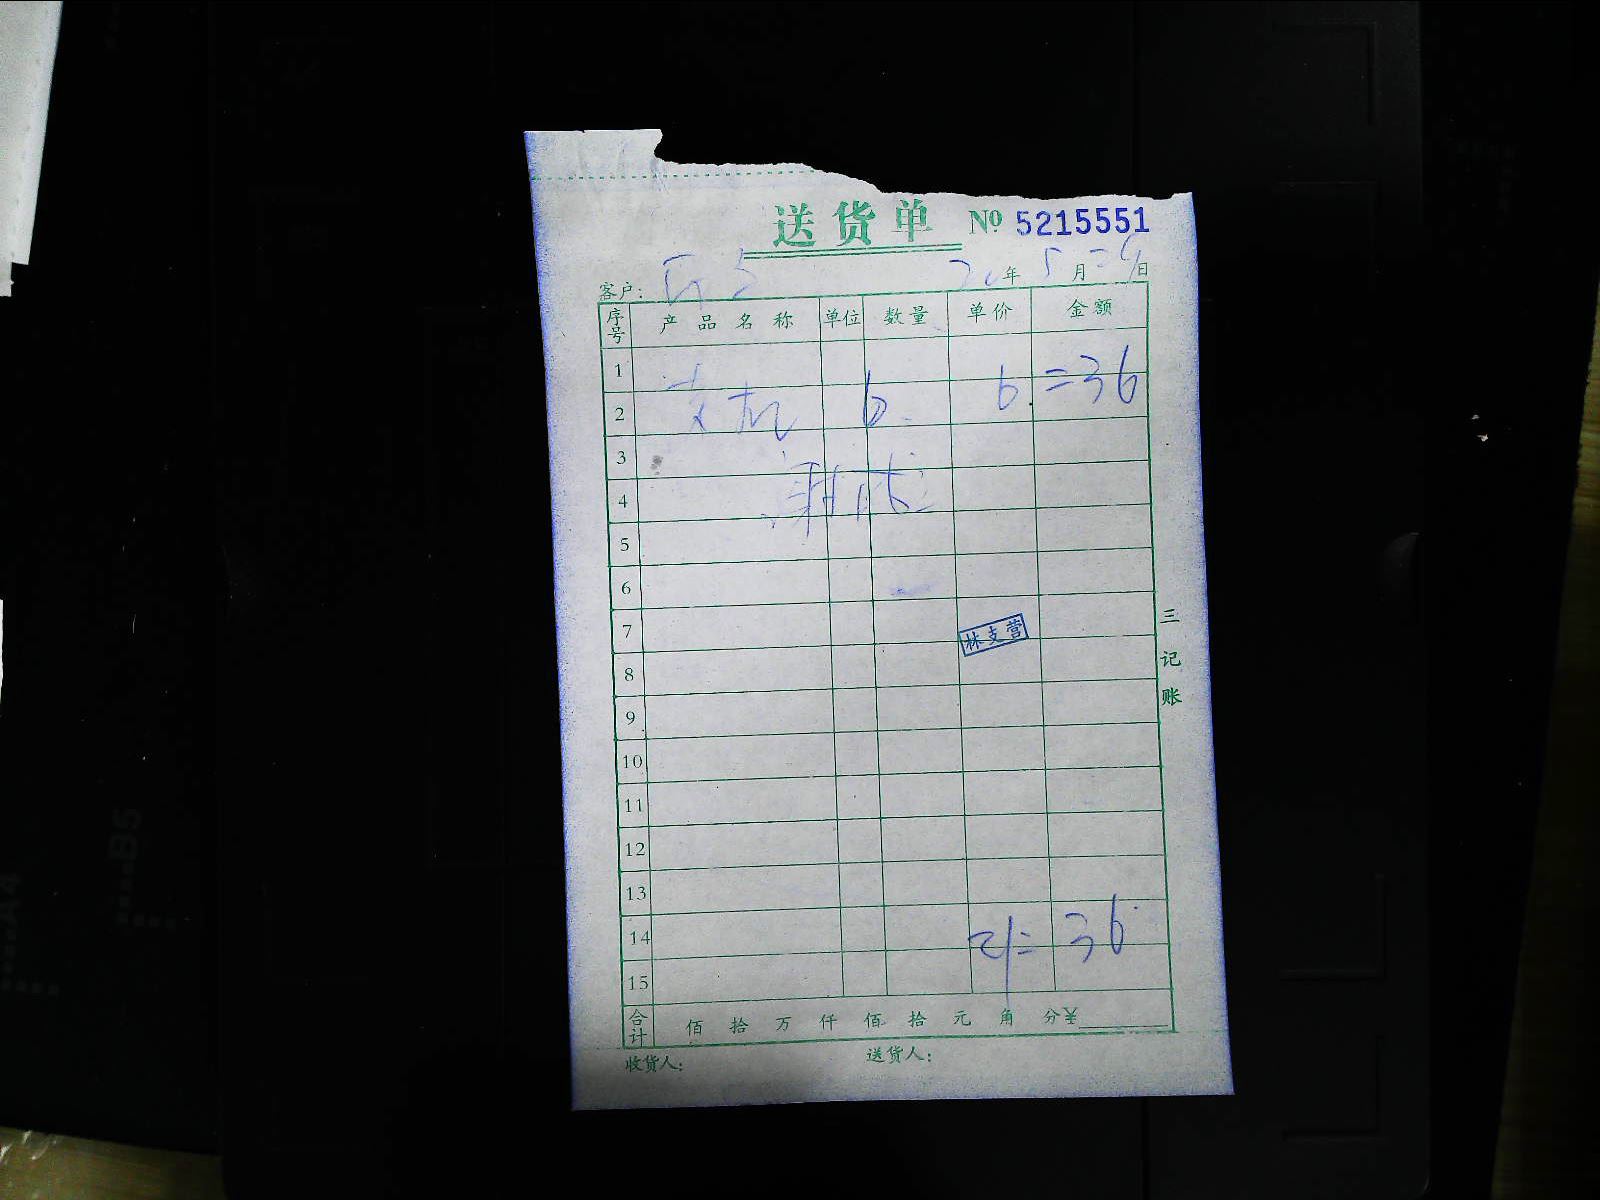 送货单 № 5215551
客户: 20年 5月 日
序号 产品名称 单位 数量 单价 金额
1
2 6 6 =36
3
4
5
6
7
林支营
8
9
10
11
12
13
14 36
15
合计 佰 拾 万 仟 佰 拾 元 角 分¥
收货人: 送货人:
三记账
B5
A4